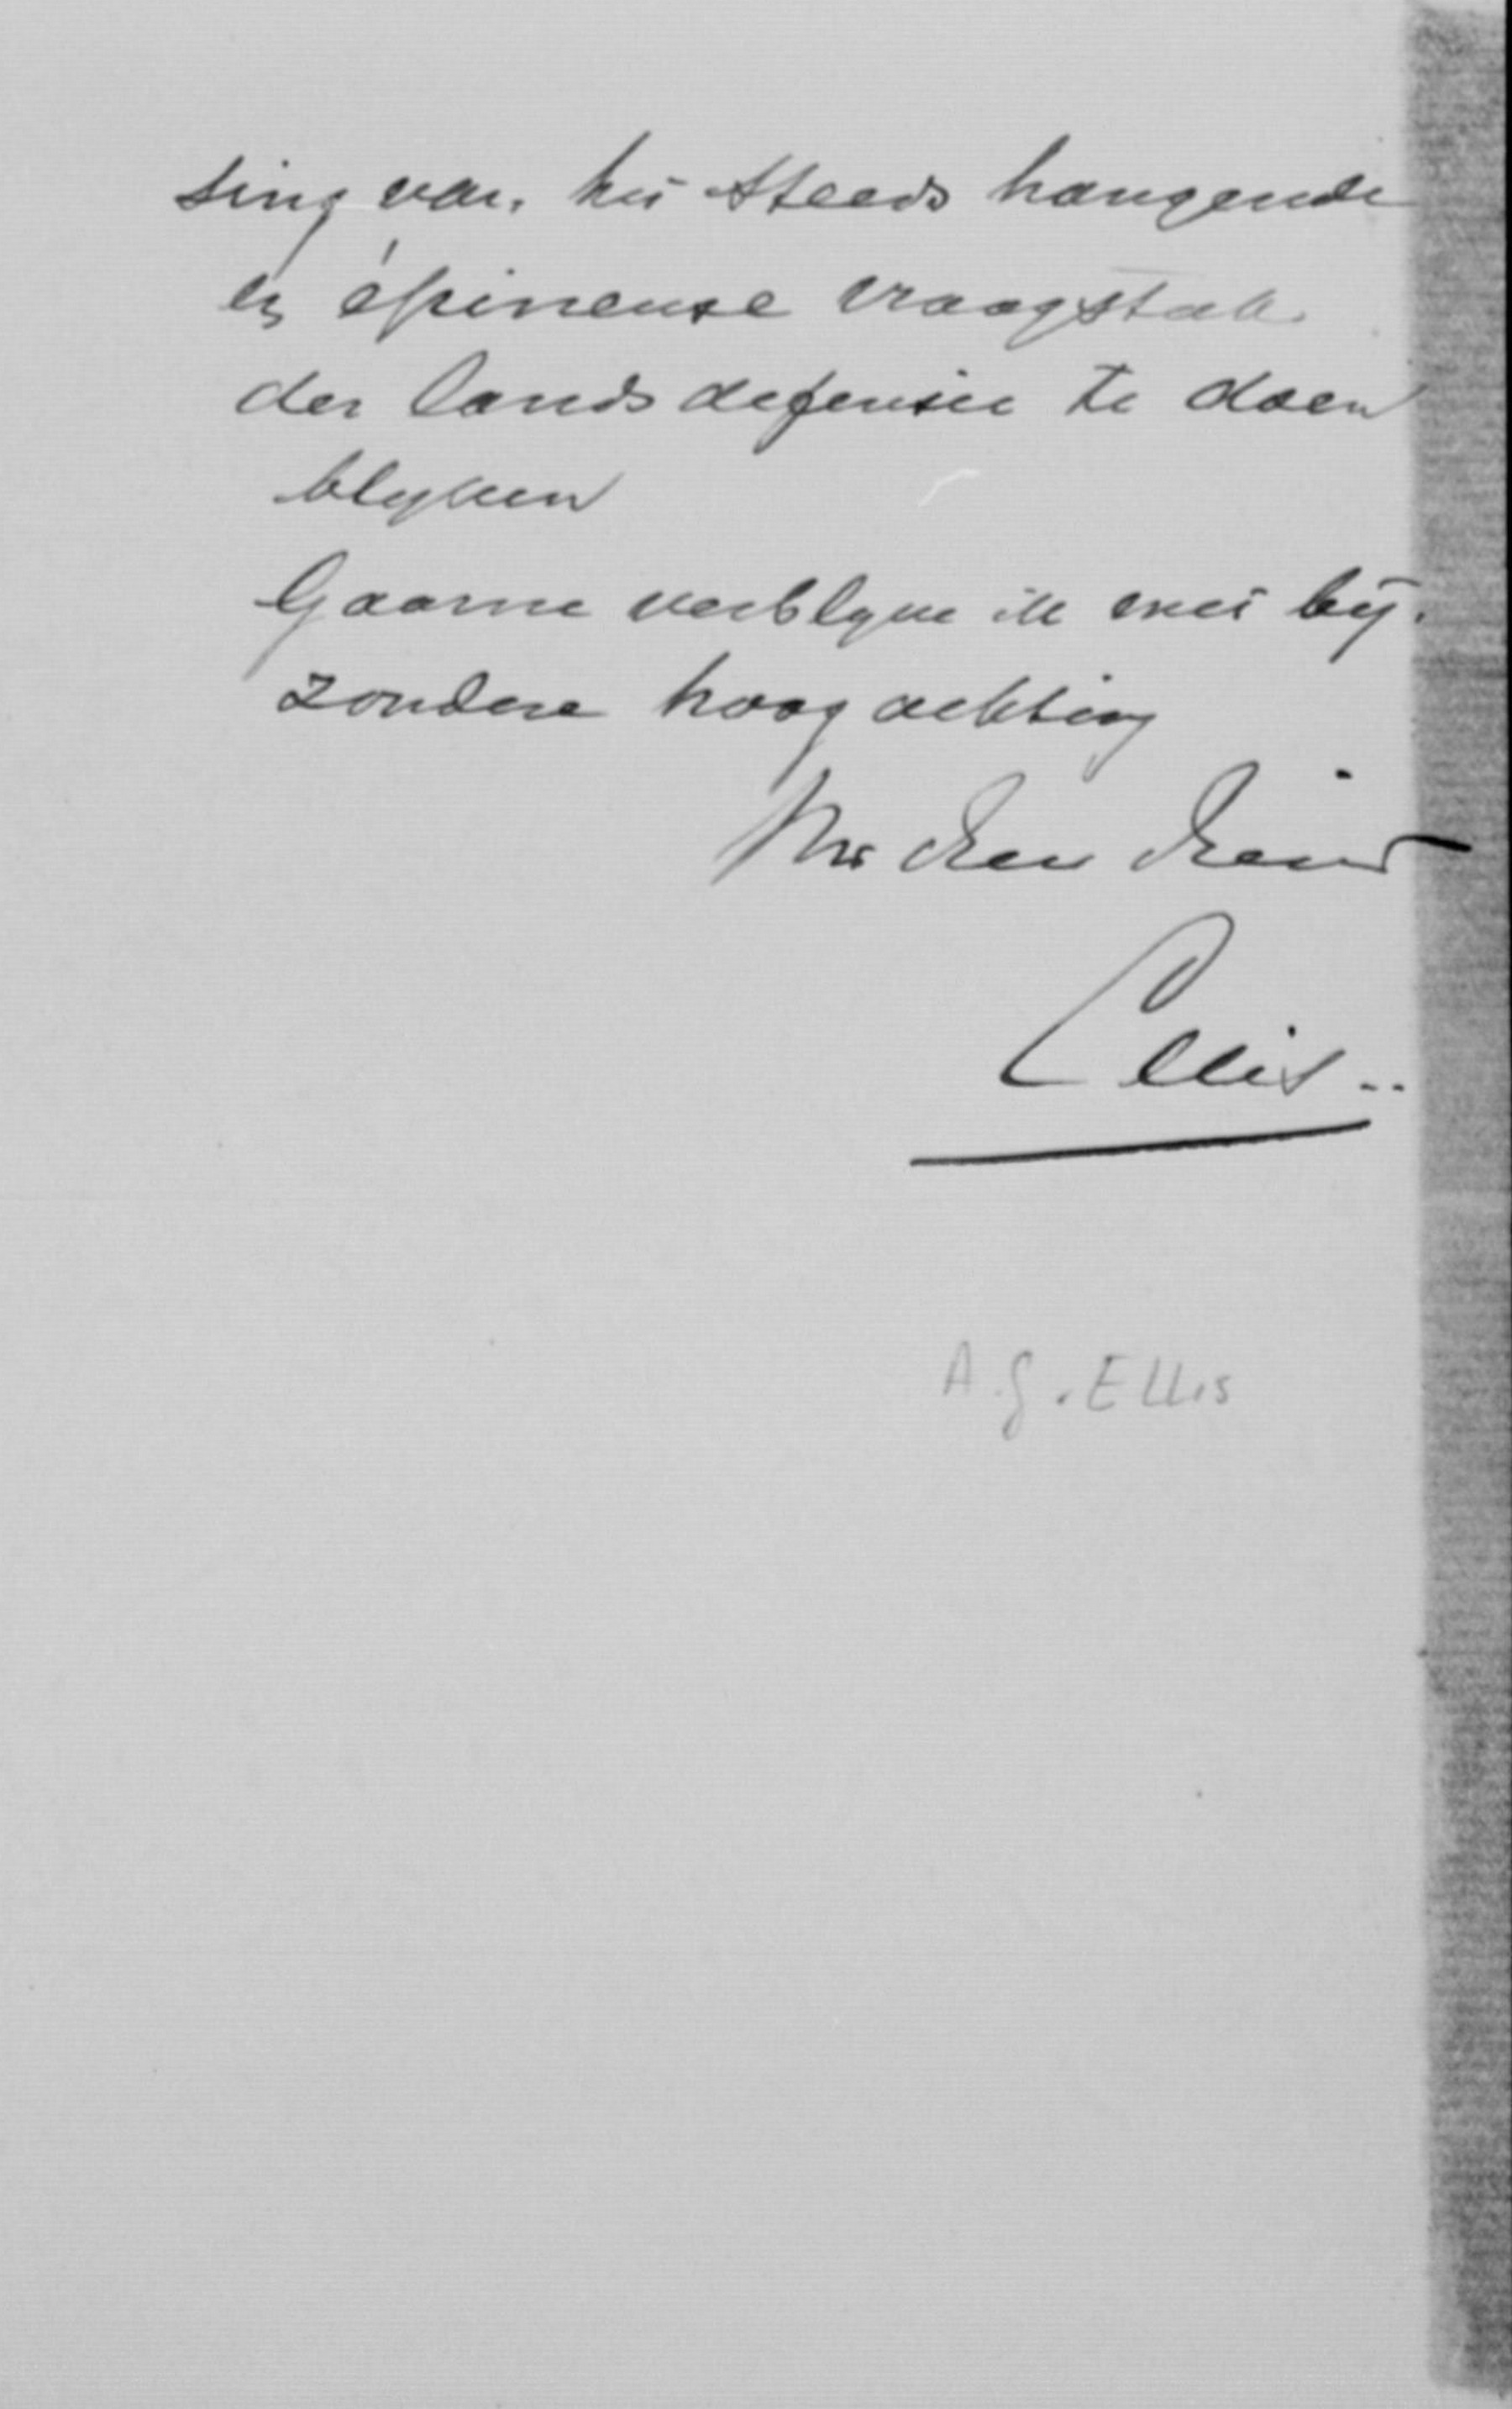 sing van het steeds hangende
en épineuse vraagstuk
der lands defensie te doen
blyken
Gaarne verblyve ik met bij-
zondere hoogachting
Uw dew dien
Ellis..
A.G. Ellis